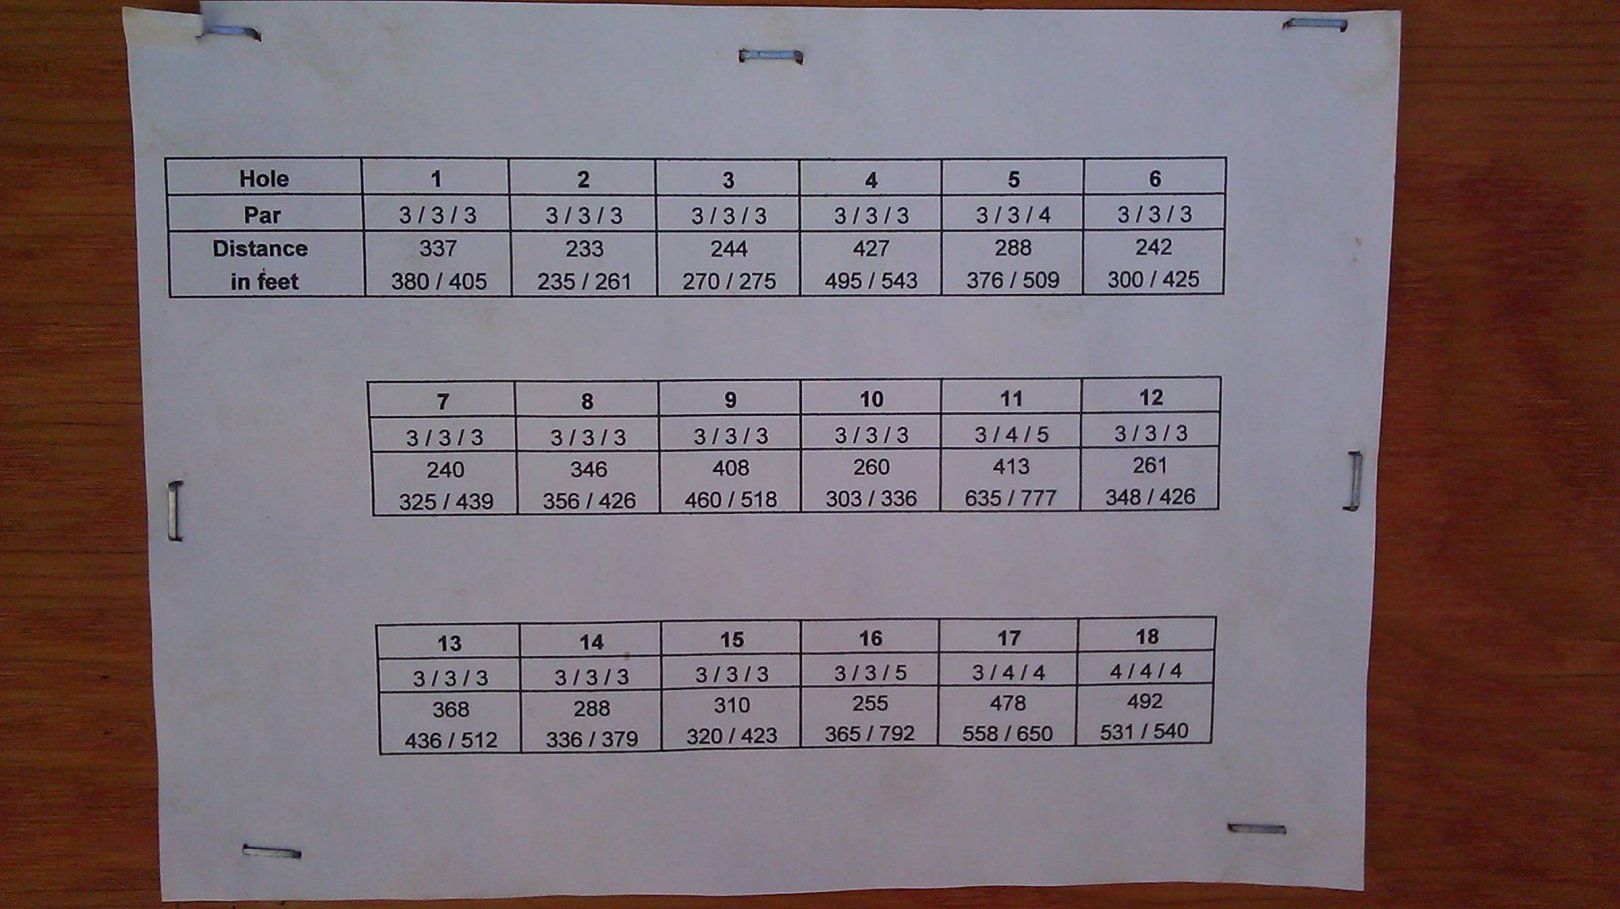 Hole 1 2 3 4 5 6
Par 3 / 3 / 3 3 / 3 / 3 3 / 3 / 3 3 / 3 / 3 3 / 3 / 4 3 / 3 / 3
Distance 337 233 244 427 288 242
in feet 380 / 405 235 / 261 270 / 275 495 / 543 376 / 509 300 / 425
7 8 9 10 11 12
3 / 3 / 3 3 / 3 / 3 3 / 3 / 3 3 / 3 / 3 3 / 4 / 5 3 / 3 / 3
240 346 408 260 413 261
325 / 439 356 / 426 460 / 518 303 / 336 635 / 777 348 / 426
13 14 15 16 17 18
3 / 3 / 3 3 / 3 / 3 3 / 3 / 3 3 / 3 / 5 3 / 4 / 4 4 / 4 / 4
368 288 310 255 478 492
436 / 512 336 / 379 320 / 423 365 / 792 558 / 650 531 / 540